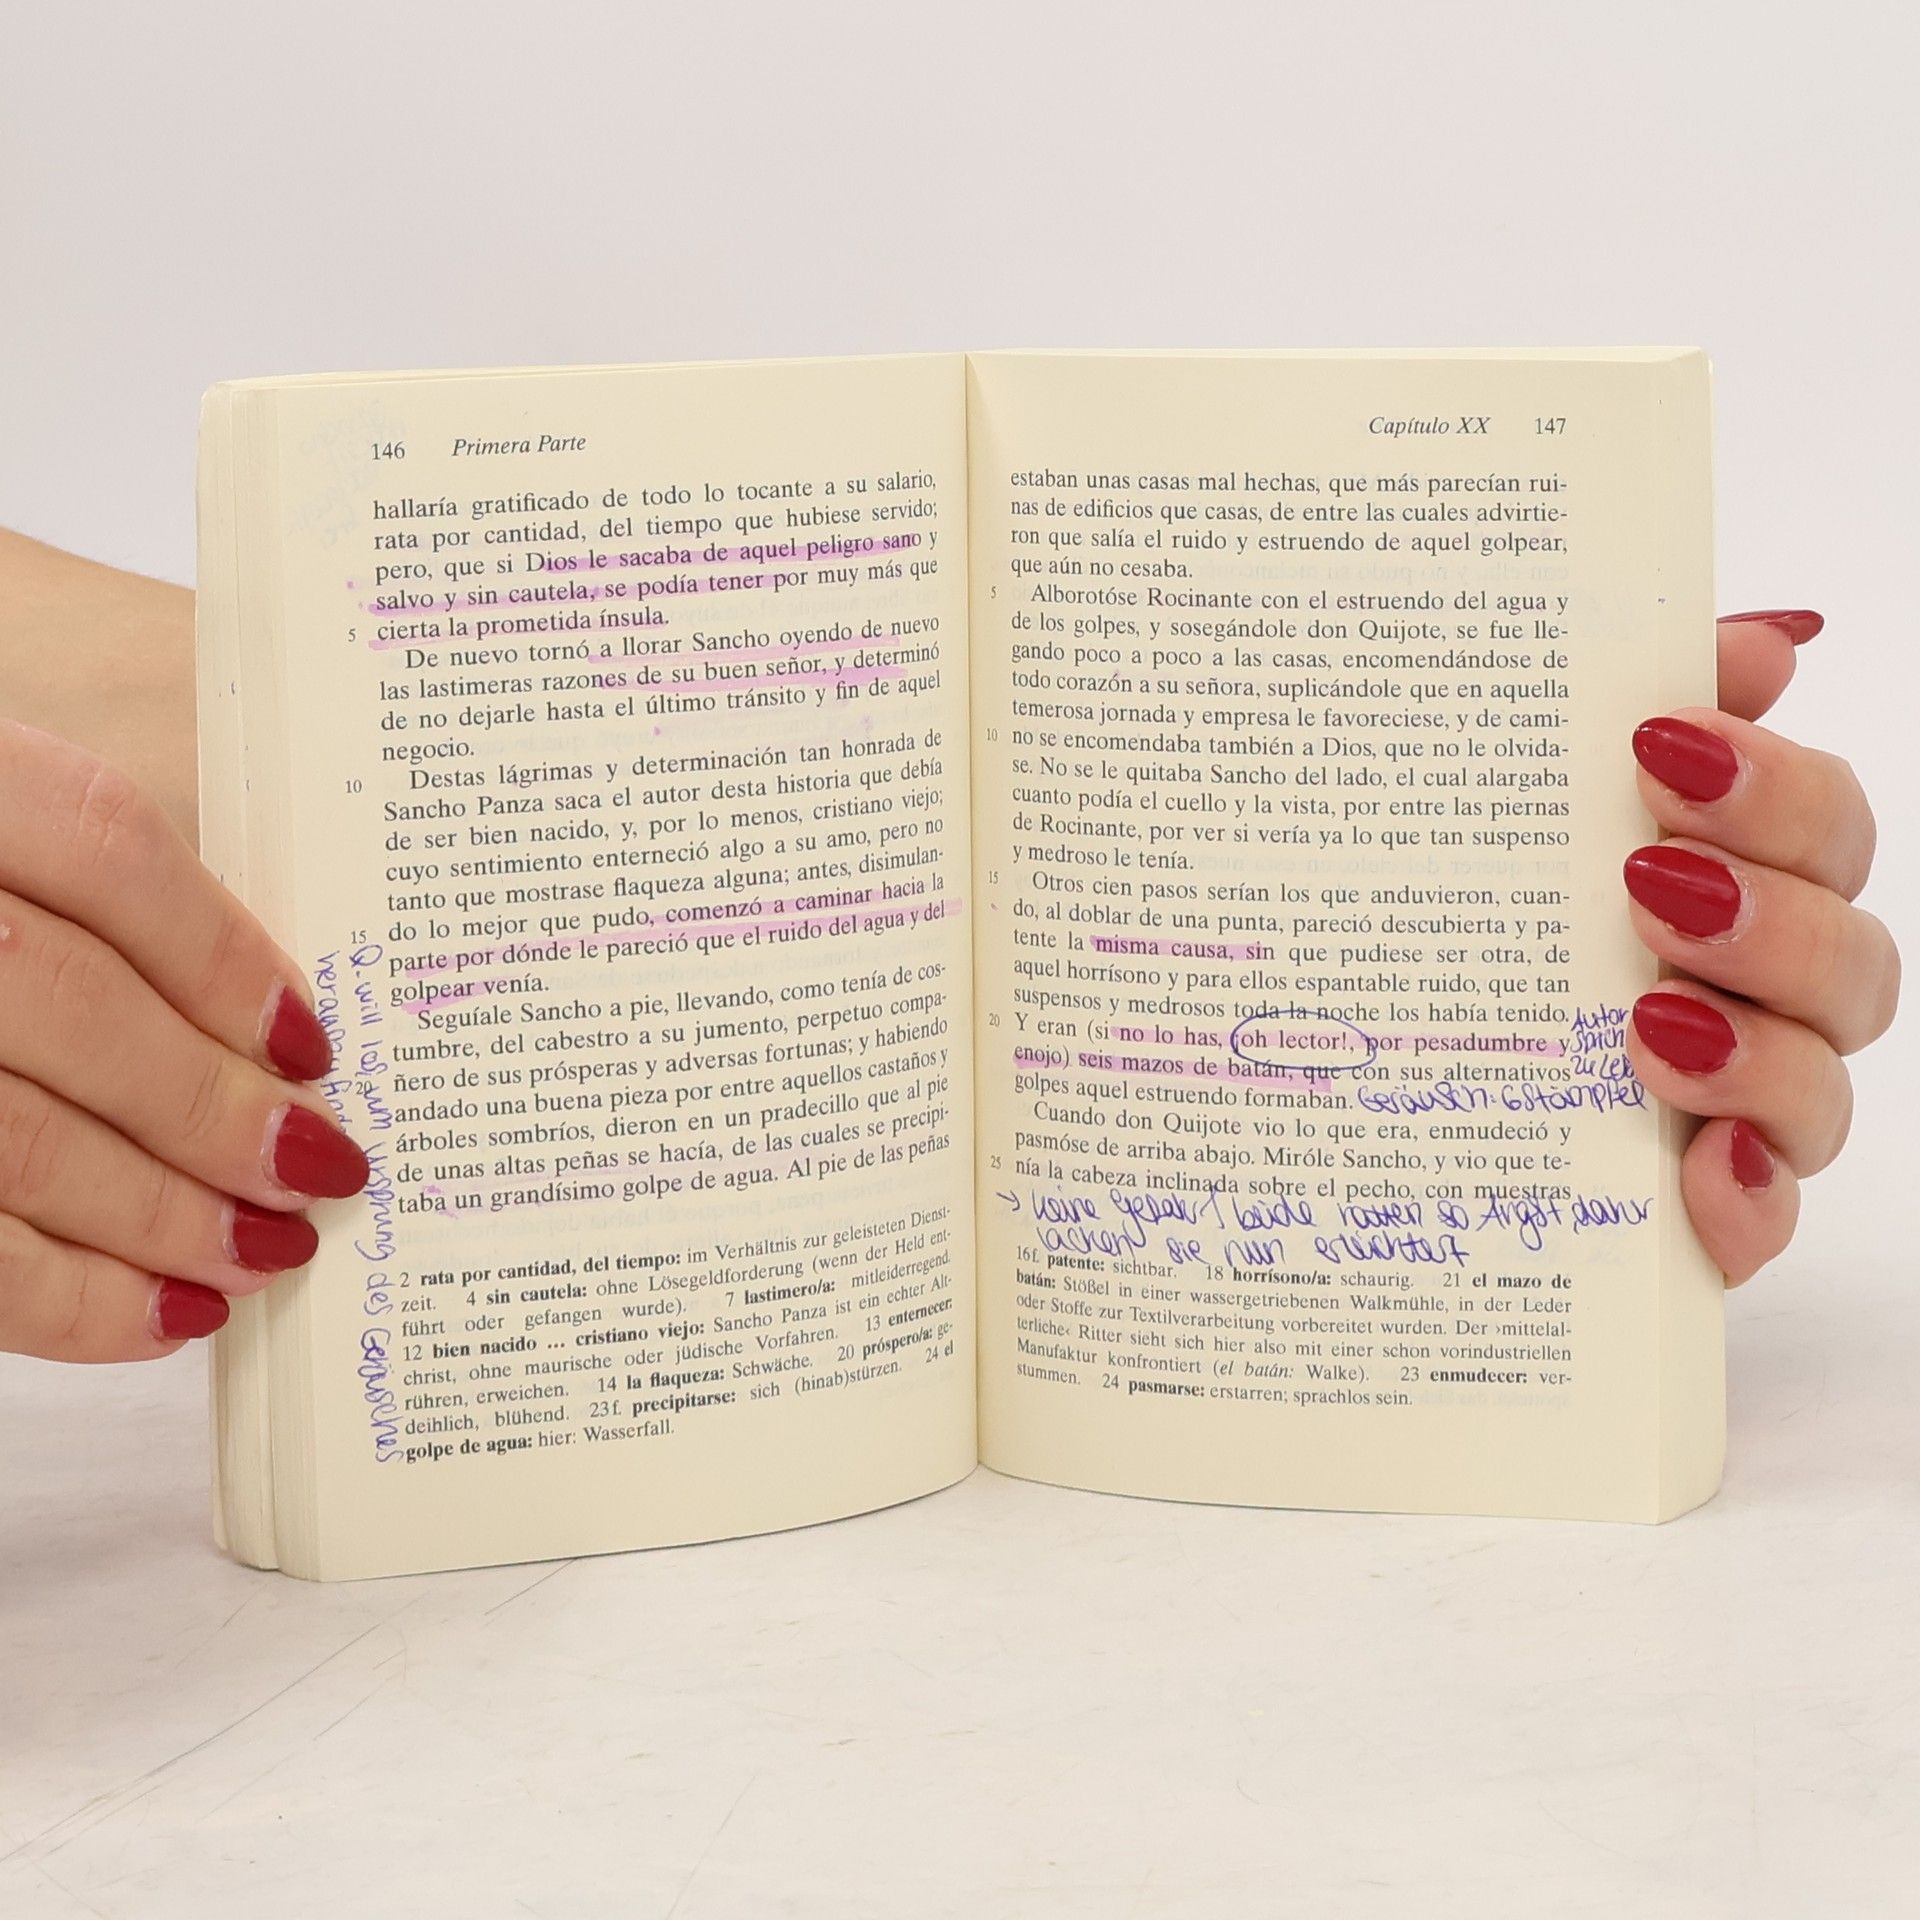 146 Primera Parte
hallaría gratificado de todo lo tocante a su salario,
rata por cantidad, del tiempo que hubiese servido;
pero, que si Dios le sacaba de aquel peligro sano y
salvo y sin cautela, se podía tener por muy más que
5 cierta la prometida ínsula.
De nuevo tornó a llorar Sancho oyendo de nuevo
las lastimeras razones de su buen señor, y determinó
de no dejarle hasta el último tránsito y fin de aquel
negocio.
10 Destas lágrimas y determinación tan honrada de
Sancho Panza saca el autor desta historia que debía
de ser bien nacido, y, por lo menos, cristiano viejo;
cuyo sentimiento enterneció algo a su amo, pero no
tanto que mostrase flaqueza alguna; antes, disimulan-
15 do lo mejor que pudo, comenzó a caminar hacia la
parte por dónde le pareció que el ruido del agua y del
golpear venía.
Seguíale Sancho a pie, llevando, como tenía de cos-
tumbre, del cabestro a su jumento, perpetuo compa-
20 ñero de sus prósperas y adversas fortunas; y habiendo
andado una buena pieza por entre aquellos castaños y
árboles sombríos, dieron en un pradecillo que al pie
de unas altas peñas se hacía, de las cuales se precipi-
taba un grandísimo golpe de agua. Al pie de las peñas
Q. will Ursprung des Geräusches
2 rata por cantidad, del tiempo: im Verhältnis zur geleisteten Dienst-
zeit. 4 sin cautela: ohne Lösegeldforderung (wenn der Held ent-
führt oder gefangen wurde). 7 lastimero/a: mitleiderregend.
12 bien nacido ... cristiano viejo: Sancho Panza ist ein echter Alt-
christ, ohne maurische oder jüdische Vorfahren. 13 enternecer:
rühren, erweichen. 14 la flaqueza: Schwäche. 20 próspero/a: ge-
deihlich, blühend. 23 f. precipitarse: sich (hinab)stürzen. 24 el
golpe de agua: hier: Wasserfall.
Capítulo XX 147
estaban unas casas mal hechas, que más parecían rui-
nas de edificios que casas, de entre las cuales advirtie-
ron que salía el ruido y estruendo de aquel golpear,
que aún no cesaba.
5 Alborotóse Rocinante con el estruendo del agua y
de los golpes, y sosegándole don Quijote, se fue lle-
gando poco a poco a las casas, encomendándose de
todo corazón a su señora, suplicándole que en aquella
temerosa jornada y empresa le favoreciese, y de cami-
10 no se encomendaba también a Dios, que no le olvida-
se. No se le quitaba Sancho del lado, el cual alargaba
cuanto podía el cuello y la vista, por entre las piernas
de Rocinante, por ver si vería ya lo que tan suspenso
y medroso le tenía.
15 Otros cien pasos serían los que anduvieron, cuan-
do, al doblar de una punta, pareció descubierta y pa-
tente la misma causa, sin que pudiese ser otra, de
aquel horrísono y para ellos espantable ruido, que tan
suspensos y medrosos toda la noche los había tenido.
20 Y eran (si no lo has, ¡oh lector!, por pesadumbre y
enojo) seis mazos de batán, que con sus alternativos
golpes aquel estruendo formaban.
Autor
Geräusch: 6 Stämpfel
Cuando don Quijote vio lo que era, enmudeció y
pasmóse de arriba abajo. Miróle Sancho, y vio que te-
25 nía la cabeza inclinada sobre el pecho, con muestras
→ keine Gefahr beide hatten so Angst, daher
lachen sie nun erleichtert
16 f. patente: sichtbar. 18 horrísono/a: schaurig. 21 el mazo de
batán: Stößel in einer wassergetriebenen Walkmühle, in der Leder
oder Stoffe zur Textilverarbeitung vorbereitet wurden. Der ›mittelal-
terliche‹ Ritter sieht sich hier also mit einer schon vorindustriellen
Manufaktur konfrontiert (el batán: Walke). 23 enmudecer: ver-
stummen. 24 pasmarse: erstarren; sprachlos sein.